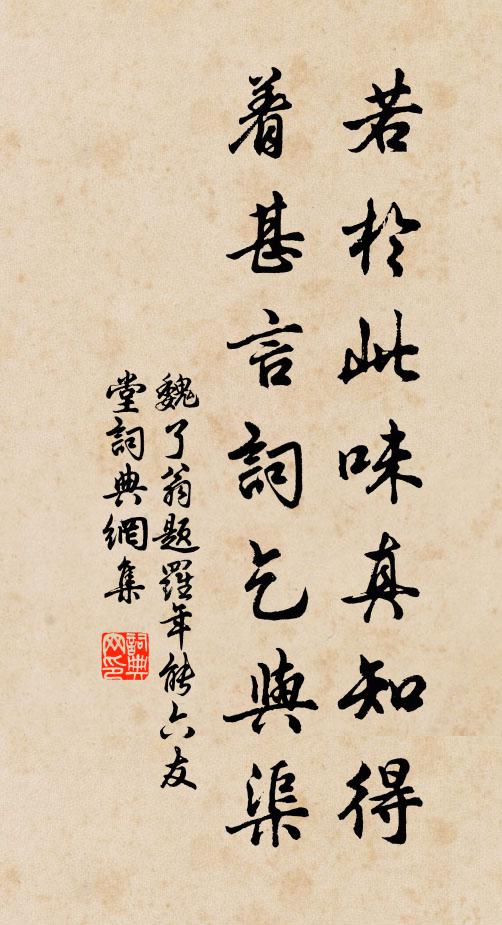 若於此味真知得
着甚言詞乞與渠
魏了翁題羅年能六友
堂詞典網集
詞典網印